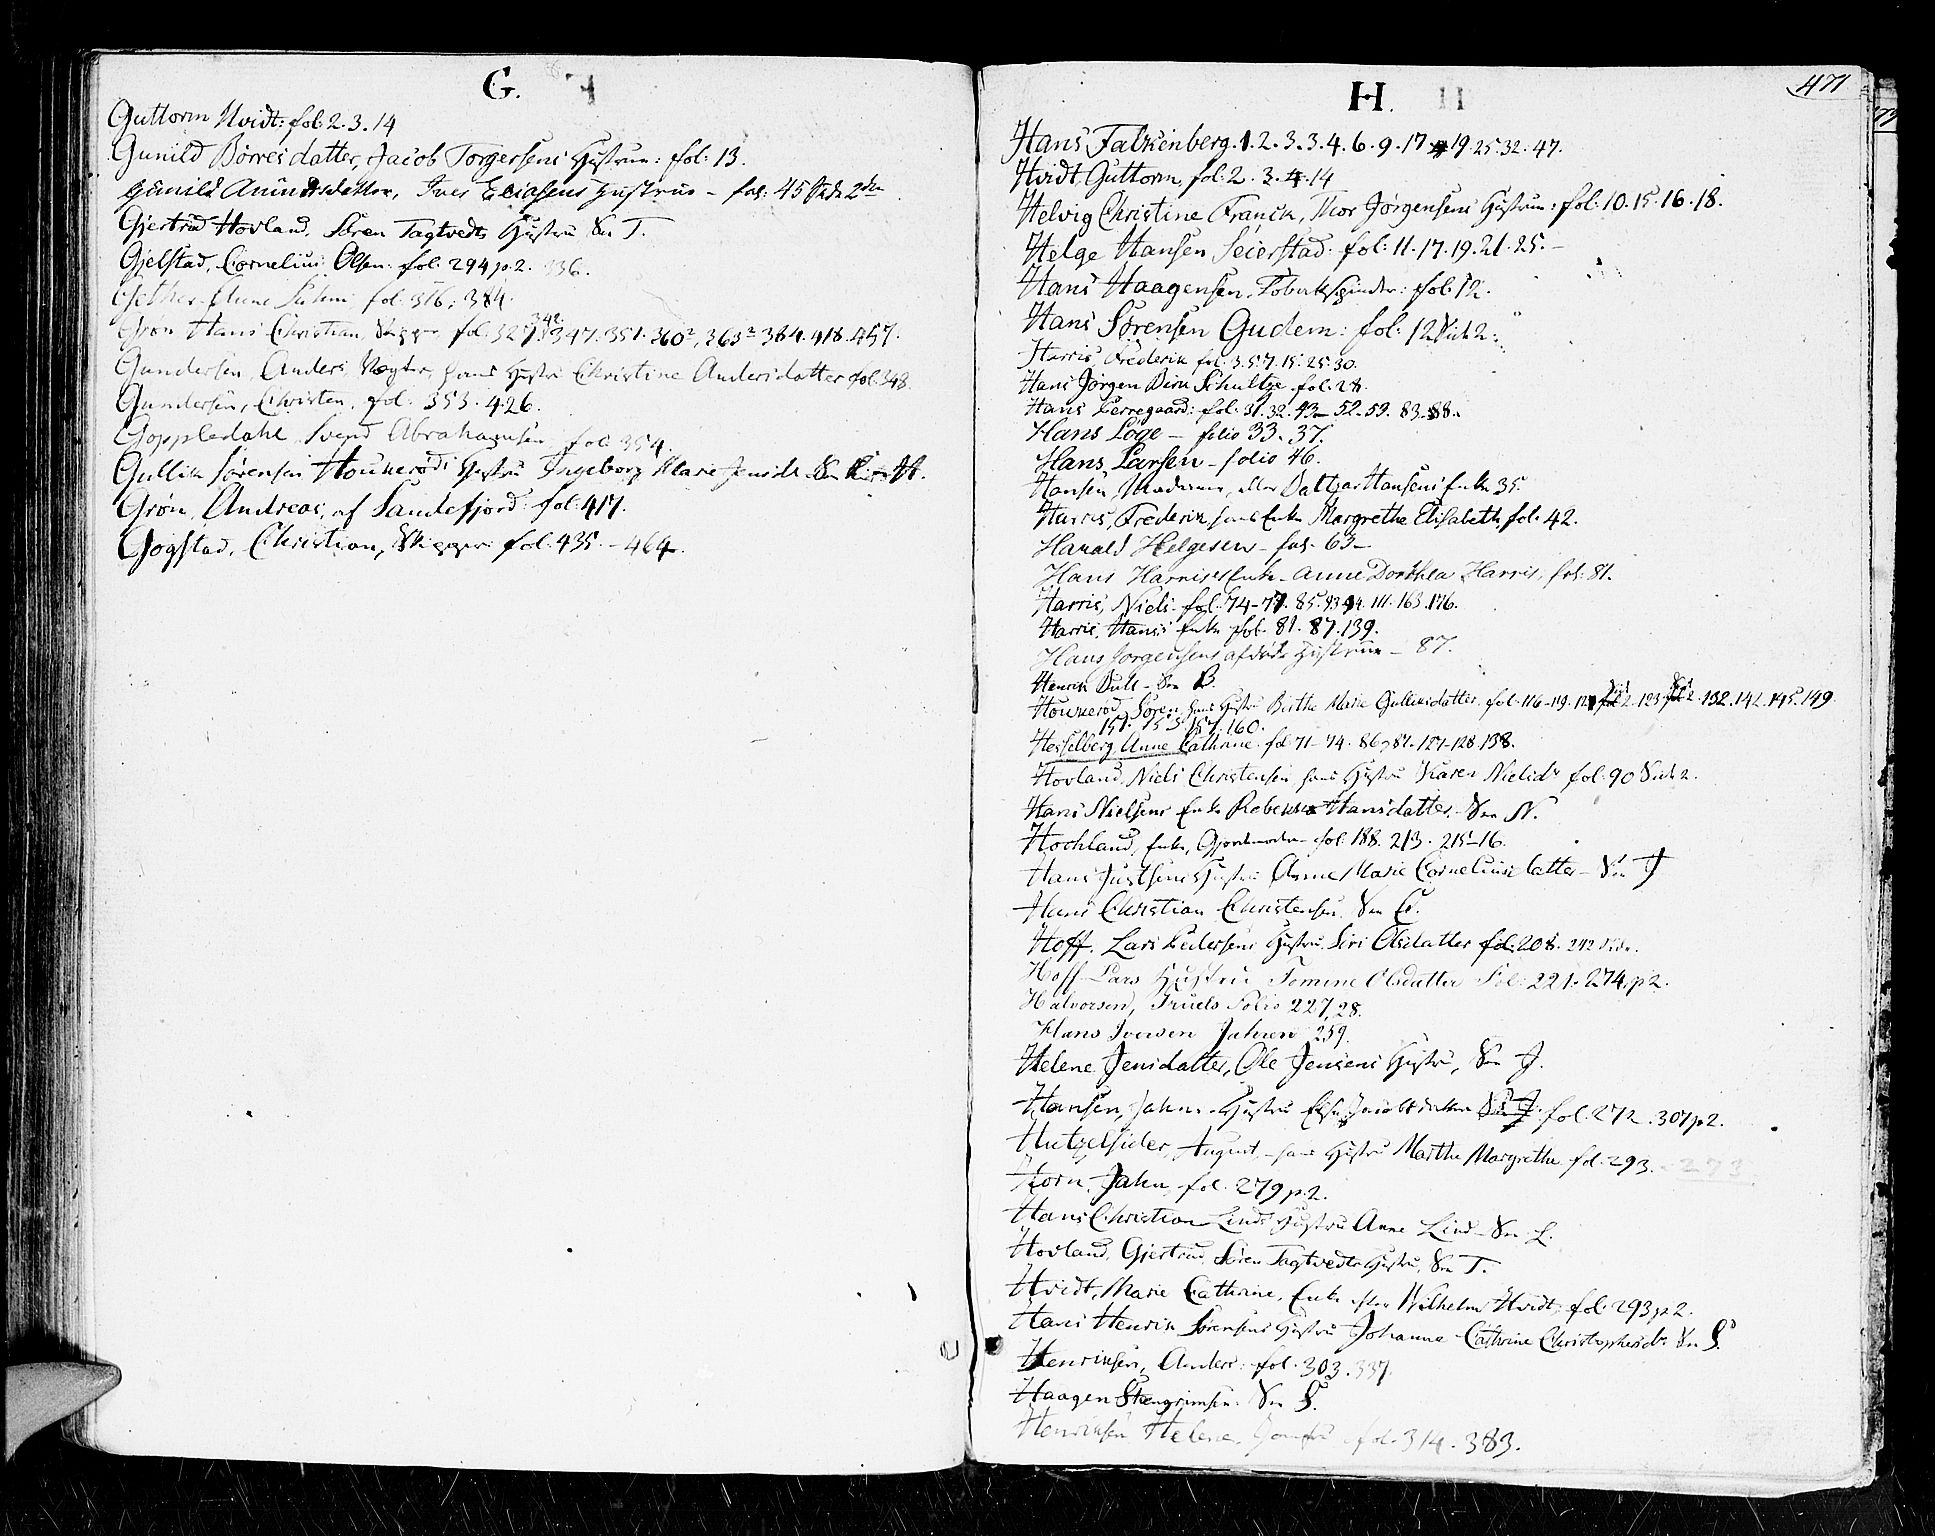 G.
Guttorm Hvidt: fol: 2. 3. 14
Gunild Börresdatter, Jacob Torgersens Hustrue: fol: 13.
Gunild Amundsdatter, Ives Eliasens Hustrue - fol: 45 Side 2den
Gjertrud Hovland, Sören Tagtvedts Hustru See T.
Gjelstad, Cornelius Olsen. fol. 294 p 2. 336.
fol. 376; 384.
Grøn Hans Christian, Skipper fol. 327. 342. 347. 351. 360², 363² 384. 418. 457.
Gundersen, Anders, Vægter, hans Hustru Christine Andersdatter fol. 348.
Gundersen, Christen, fol. 353. 426.
Goppledahl Svend Abrahamsen, fol: 354.
Gullik Sörensen Houkeröds Hustru Ingeborg Marie Jensdr. See H.
Grøn, Andreas, af Sandefjord. fol: 417.
Gogstad, Christian, Skipper fol. 435. - 464.
H.
471
Hans Falkenberg. 1. 2. 3. 3. 4. 6. 9. 17. 19. 25. 32. 47.
Hvidt Guttorm, fol: 2. 3. 4. 14
Helvig Christine Franck, Thor Jörgensens Hustrue: fol: 10. 15. 16. 18.
Helge Hansen Seierstad. fol: 11. 17. 19. 21. 25. -
Hans Haagensen, Tobakspinder: fol: 12.
Hans Sörensen Gudem: fol. 12 Side 2:
Harris, Frederik fol. 3. 5. 7. 15. 25. 30.
Hans Jörgen Dirk Schultze. fol. 28.
Hans Perregaard: fol. 31. 32. 43 - 52. 59. 83. 88.
Hans Löge - folio 33. 37.
Hans Larsen - folio 46.
Hansen, Madame, eller Baltzar Hansens Enke 35.
Harris, Frederik hans Enke Margrethe Elisabeth fol. 42.
Harald Helgesen - fol. 63 -
Hans Harrises Enke - Anne Dorthea Harris, fol: 81.
Harris, Niels fol. 74 - 77. 85. 93 94. 111. 163. 176.
Harris, Hans's Enke fol. 81. 87. 139.
Hans Jorgensens afdøde Hustrue - 87.
Henrik Bull - See B.
Houkeröd, Sören, hans Hustru Birthe Marie Gulliksdatter. fol. 116 - 119. 121 Sid 2. 123. Sid 2. 132. 142. 145. 149.
151. 153 157. 160.
Hesselberg, Anne Cathrine. fol 71 - 74. 86, 87. 127 - 128. 138.
Hovland, Niels Christensen hans Hustru Karen Nielsdr fol. 90 Side 2.
Hans Nielsens Enke Rebekka Hansdatter. See N.
Hochland, Enke, Gjordemoder fol. 188. 213. 215 - 16.
Hans Justsens Hustru Anne Marie Corneliusdatter - See J
Hans Christian Christensen, See C.
Hoff, Lars Pedersens Hustru. Siri Olsdatter fol: 208. 242 Side.
Hoff Lars Hustrue Tomine Olsdatter Fol: 221. 274, p 2.
Halvorsen, Truels Folio 227, 28.
Hans Iversen Jahren 259.
Helene Jensdatter, Ole Jensens Hustru, See J.
Hansen, Jahns Hustru Else Jacobsdatter See J. fol. 272. 307 p. 2.
Hutzelsider, August, - hans Hustru Marthe Margrethe fol. 293. - 273
Horn, Jahn, fol. 279 p. 2.
Hans Christian Linds Hustru Anne Lind - See L.
Hovland, Gjertrud, Sören Tagtvedts Hustru, See T.
Hvidt, Marie Cathrine, Enke efter Wilhelm Hvidt, fol: 293 p 2.
Hans Henrik Sörensens Hustru Johanne Cathrine Christophersdr See S.
Henriksen, Anders: fol. 303. 337.
Haagen Stengrimsen. See S.
Henriksen Helene, Jomfru fol. 314. 383.